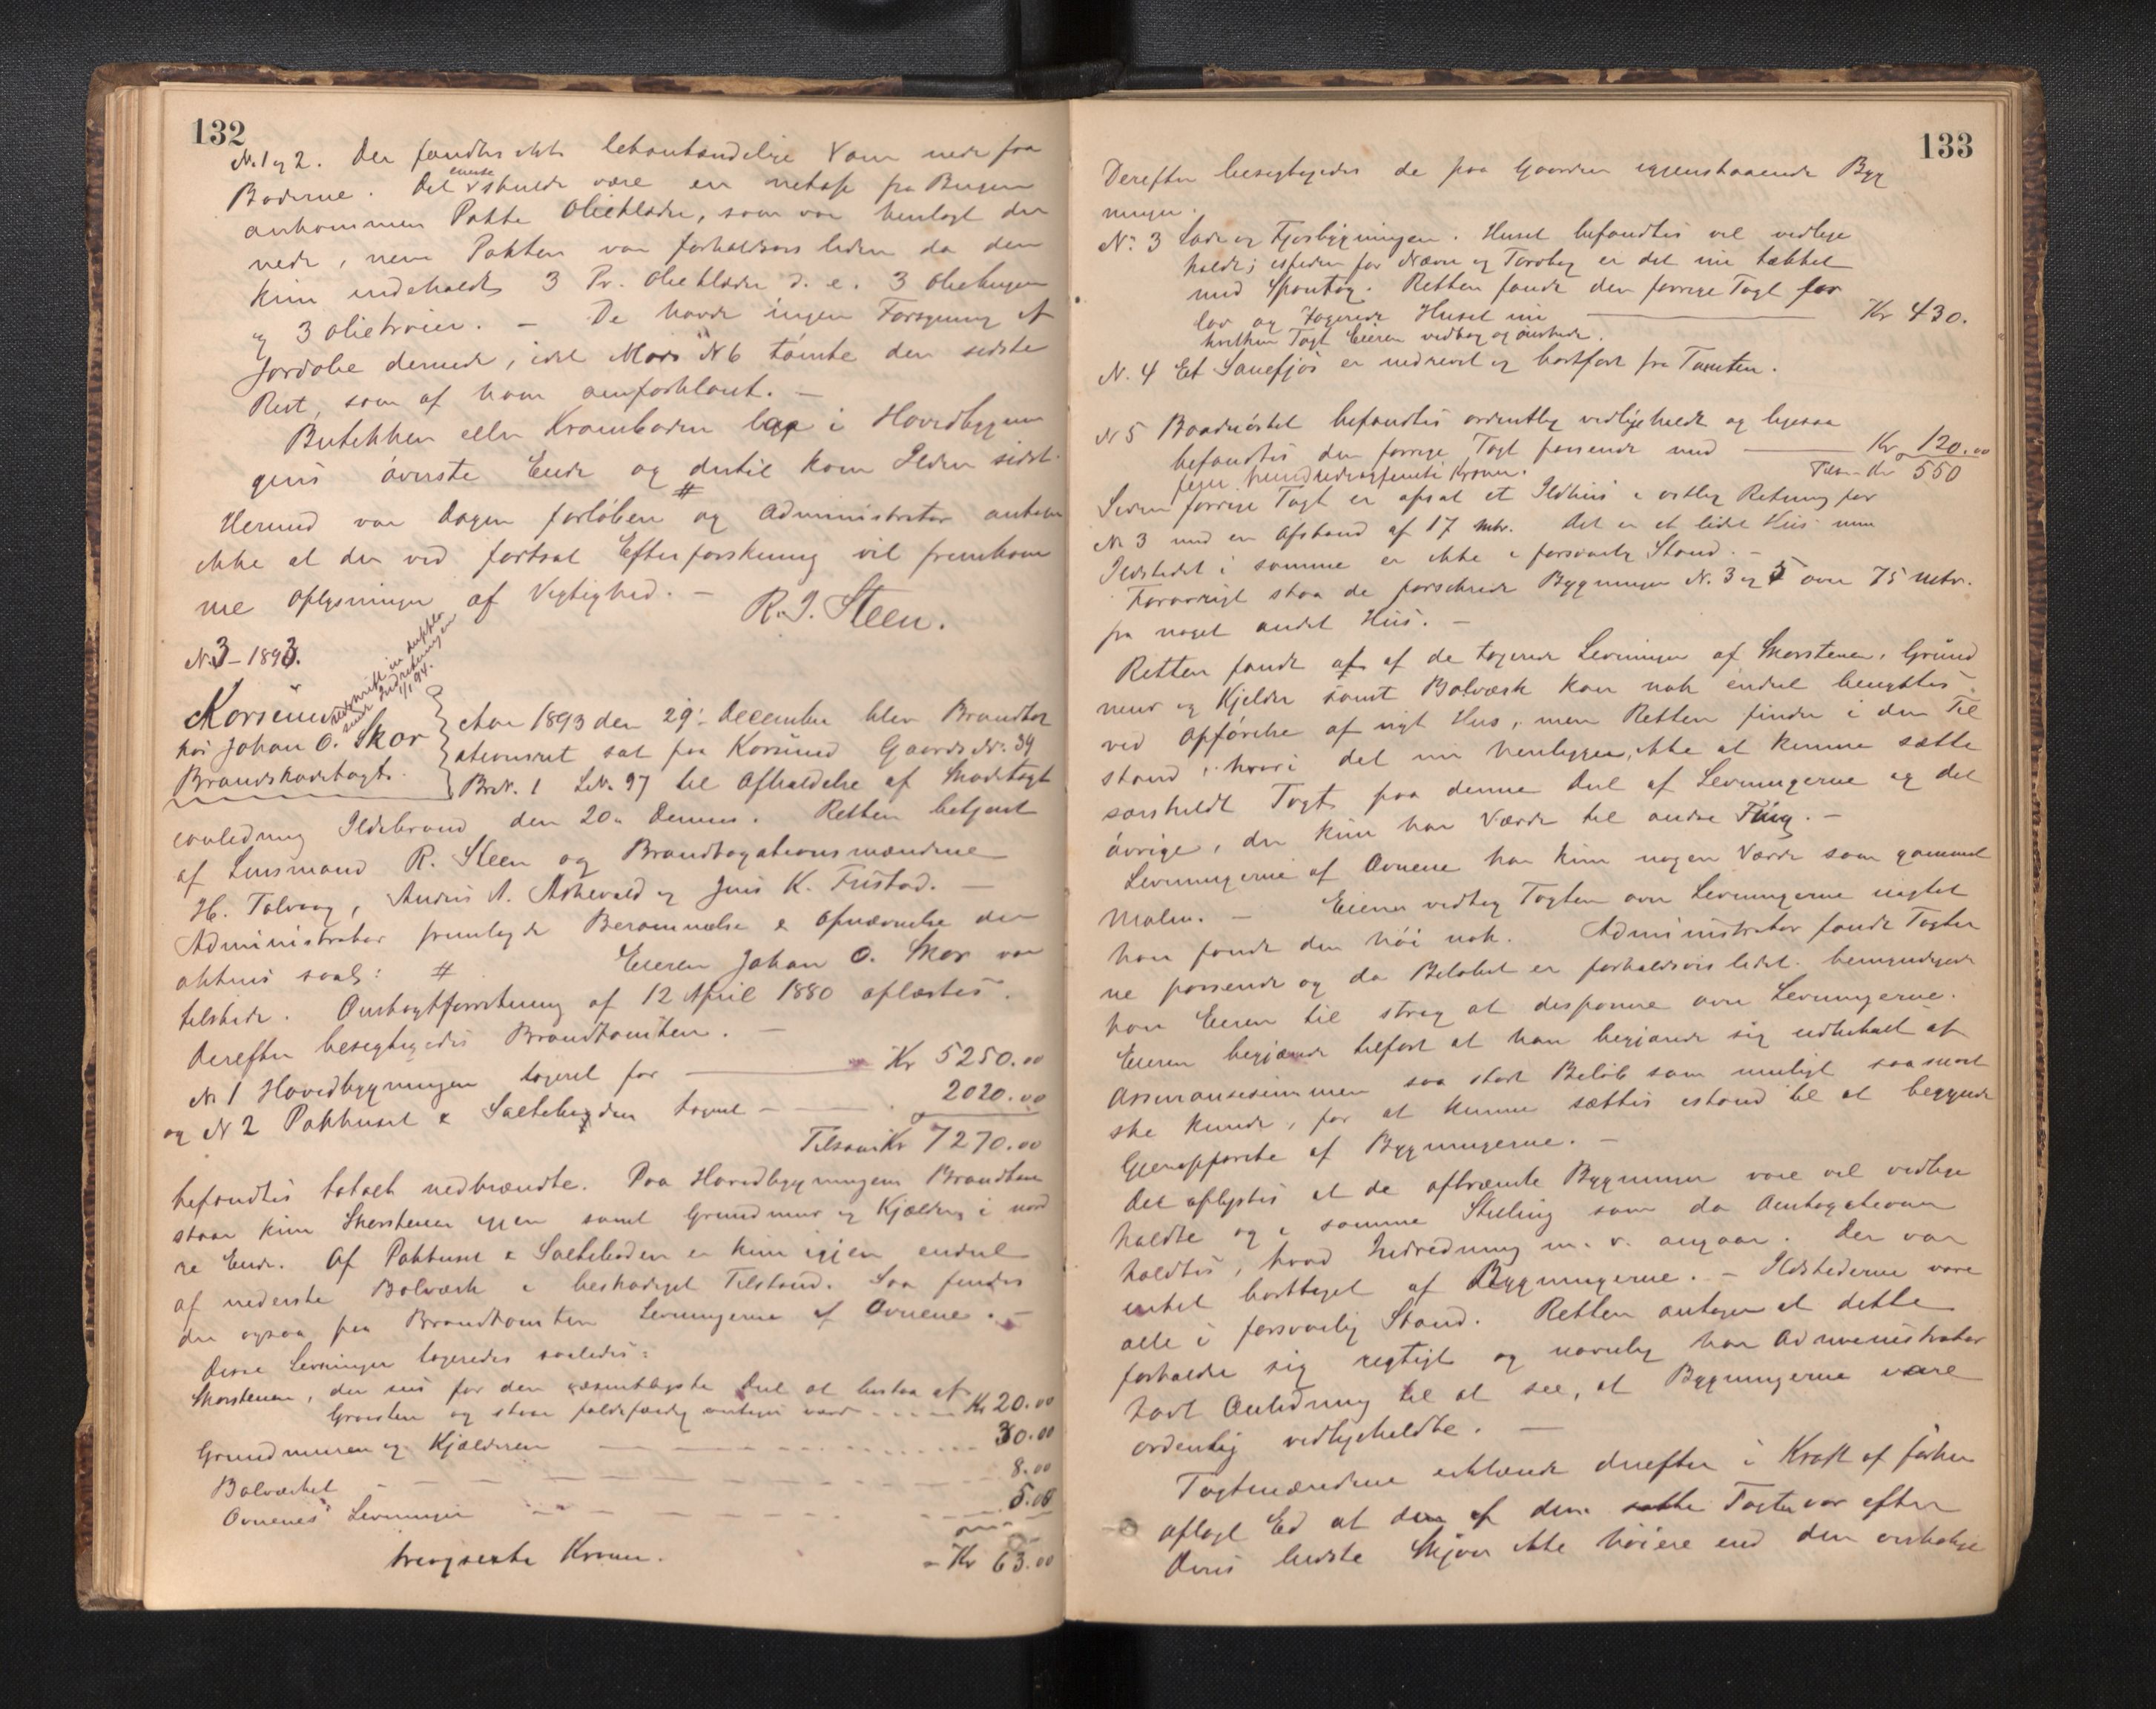 132
No. 1 og 2. Der fandtes ikke letantændelige Varer nede fra
Boderne. Det eneste skulde være en netop fra Bergen
ankommen Pakke Olieklæder, som var henlagt der
nede, men Pakken var forholdsvis liden da den
kun indeholdt 3 Pr. Olieklæder d. e. 3 oliebuxer
og 3 olietrøier. - De havde ingen Forsyning af
Jordolie dernede, idet Mads N 6 tømte den sidste
Rest, som af ham omforklaret. -
Butikken eller Kramboden laa i Hovedbygnin
gens øverste Ende og dertil kom Ilden sidst.
#
Hermed var Dagen forløben og Administrator antager
ikke at der ved fortsat Efterforskning vil fremkom
me Oplysninger af Vigtighed. -
R. J. Steen.
No. 3 - 1893.
Udskrift in duplo
sendt Indretningen
1/1 94.
Korsund
hos Johan O. Skor
Brandskadetagt.
Aar 1893 den 29. December blev Brandtax
ationsret sat paa Korsund Gaards No. 39
BrN. 1 LN. 97 til Afholdelse af Skadetagt
i anledning Ildebrand den 20. Dennes. Retten betjent
af Lensmand R. Steen og Brandtagationsmændene
H. Talvaag, Anders A. Askevold og Jens K. Fristad. -
Administrator fremlagde Berammelse & Opnævnelse der
aktens saal: # Eieren Johan O. Skor var
tilstede. Omtagtforretning af 12 April 1880 oplæstes.
Derefter besigtigedes Brandtomten. -
N 1 Hovedbygningen tageret for - Kr 5250.00
og N 2 Pakhuset & Salteboden tageret - 2020.00
Tilsam Kr 7270.00
befandtes totalt nedbrændte. Paa Hovedbygningens Brandtom
staar kun Skorstenen igjen samt Grundmur og Kjælder i nord
re Ende. Af Pakhuset & Salteboden er kun igjen endel
af nederste Bolværk i beskadiget Tilstand. Saa findes
der ogsaa paa Brandtomten Levningerne af Ovnene. -
Disse Levninger tageredes saaledes:
Skorstenen, der sees for den væsentligste Del at bestaa af
Graasten og staar faldefærdig antages værd - Kr 20.00
Grundmuren og Kjælderen - 30.00
Bolværket - 8.00
Ovnenes Levninger - 5.00
treogsexti Kroner. - Kr 63.00
133
Derefter besigtigedes de paa Gaarden igjenstaaende Byg
ninger.
No. 3 Lade og Fjøsbygningen. Huset befandtes vel vedlige
holdt; istedenfor Næver og Torvtag er det nu tækket
med Spontag. Retten fandt den forrige Tagt for
lav og Tagerede Huset nu - Kr 430.
hvilken Tagt Eieren vedtog og ønskede.
N. 4 Et Sauefjøs er nedrevet og bortført fra Tomten.
N 5 Baadnøstet befandtes ordentlig vedligeholdt og ligesaa
befandtes den forrige Tagt passende med - Kr 120.00
fem hundredeogfemti Kroner. Tilsm. Kr 550
Siden forrige Tagt er opsat et Ildhus i østlig Retning for
N 3 med en Afstand af 17 mtr. Det er et lidet Hus men
Ildstedet i samme er ikke i forsvarlig Stand. -
Forøvrigt staa de forskrevne Bygninger N. 3 og 5 over 75 mtr.
fra noget andet Hus. -
Retten fandt at af de tagerede Levninger af Skorstenen, Grund
mur og Kjelder samt Bolværk kan nok endel benyttes
ved Opførelse af nyt Hus, men Retten finder i den Til
stand, hvori det nu henligger, ikke at kunne sætte
særskildt Tagt paa denne Del af Levningerne og det
øvrige, der kun har Værd til andre Ting. -
Levningerne af Ovnene har kun nogen Værd som gammel
Malm. - Eieren vedtog Tagten over Levningerne uagtet
han fandt den høi nok. Administrator fandt Tagter
ne passende og da Beløbet er forholdsvis lidet bemyndigede
han Eieren til strax at disponere over Levningerne.
Eieren begjærede tilført at han begjærede sig udbetalt af
Assuransesummen saa stort Beløb som muligt saasnart
ske kunde, for at kunne sættes istand til at begynde
Gjenopførelse af Bygningerne. -
Det oplystes at de afbrændte Bygninger vare vel vedlige
holdte og i samme Stilling som da Omtagationen
holdtes, hvad Indredning m. v. angaar. Der var
intet borttaget af Bygningerne. - Ildstederne vare
alle i forsvarlig Stand. Retten antager at dette
forholder sig rigtigt og navnlig har Administrator
havt Anledning til at see, at Bygningerne vare
ordentlig vedligeholdte. -
Tagtmændene erklærede derefter i Kraft af forhen
aflagt Ed at den af dem satte Tagt var efter
Deres bedste Skjøn ikke høiere end den virkelige